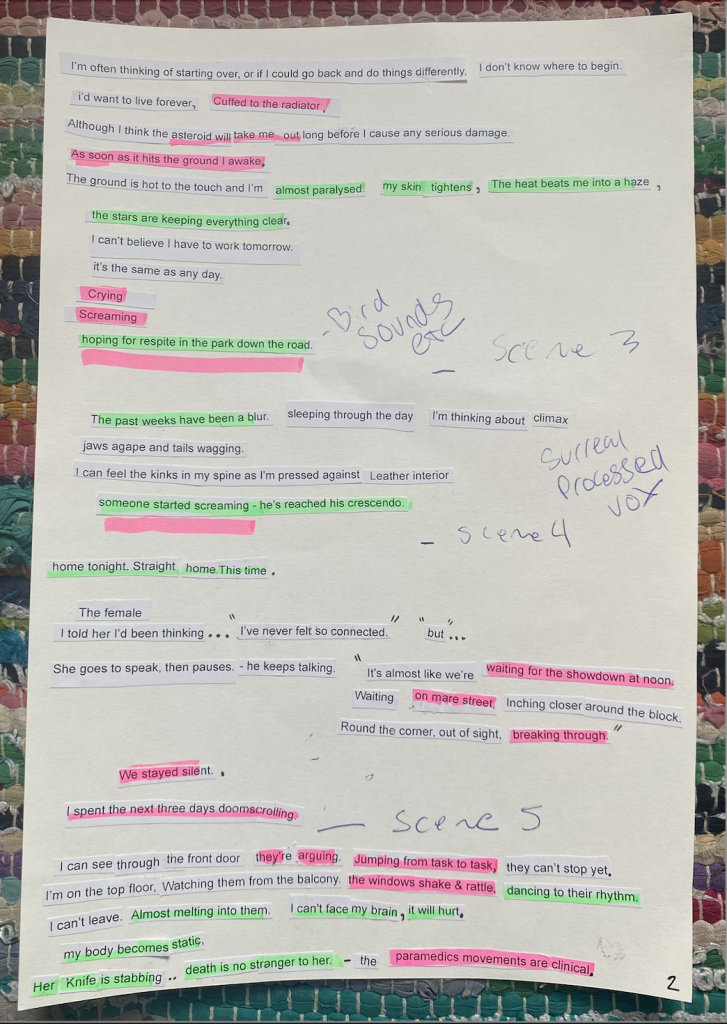 I'm often thinking of starting over, or if I could go back and do things differently. I don't know where to begin.
i'd want to live forever, Cuffed to the radiator,
Although I think the asteroid will take me out long before I cause any serious damage.
As soon as it hits the ground I awake.
The ground is hot to the touch and I'm almost paralysed. my skin tightens, The heat beats me into a haze,
the stars are keeping everything clear.
I can't believe I have to work tomorrow.
it's the same as any day.
Crying
Screaming
hoping for respite in the park down the road.
- Bird
sounds
etc
- Scene 3
The past weeks have been a blur. sleeping through the day I'm thinking about climax
jaws agape and tails wagging.
I can feel the kinks in my spine as I'm pressed against Leather interior
someone started screaming - he's reached his crescendo.
Surreal
Processed
VOX
- Scene 4
home tonight. Straight home This time.
The female
I told her I'd been thinking... "I've never felt so connected." "but"...
She goes to speak, then pauses. - he keeps talking. "It's almost like we're waiting for the showdown at noon.
Waiting on mare street, Inching closer around the block.
Round the corner, out of sight, breaking through."
We stayed silent..
I spent the next three days doomscrolling.
- Scene 5
I can see through the front door they're arguing. Jumping from task to task, they can't stop yet.
I'm on the top floor, Watching them from the balcony. the windows shake & rattle. dancing to their rhythm.
I can't leave. Almost melting into them. I can't face my brain, it will hurt.
my body becomes static.
Her Knife is stabbing.. death is no stranger to her. - the paramedics movements are clinical.
2